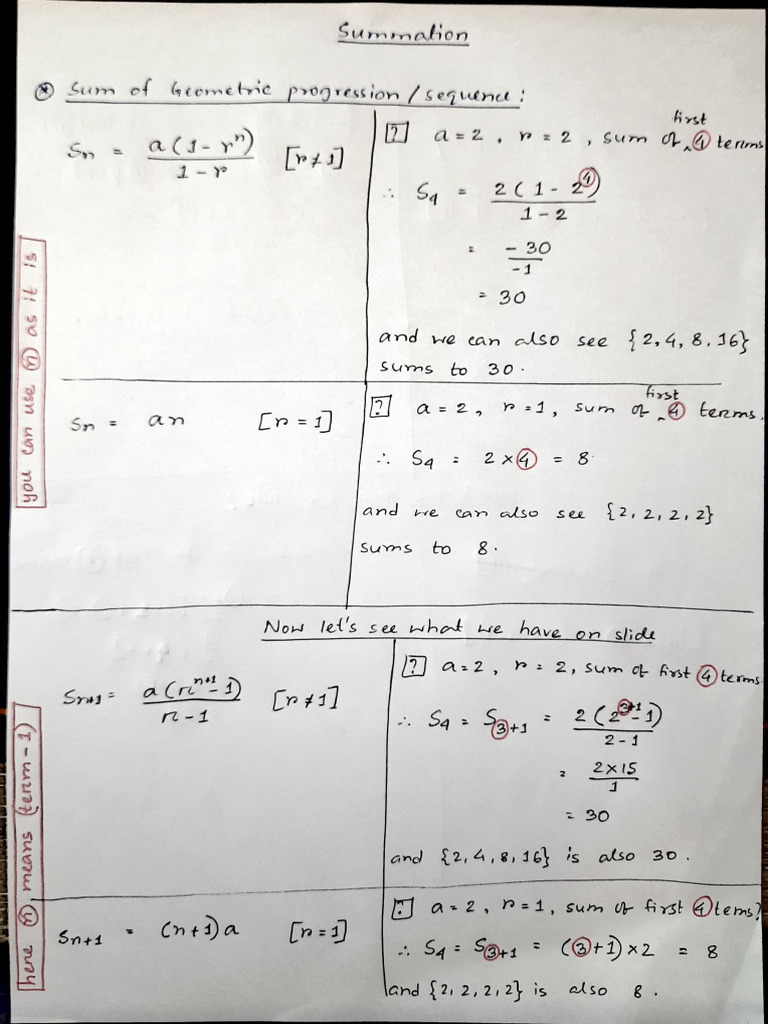 Summation
⊛ Sum of Geometric progression / sequence:
Sn = a(1-rⁿ) / 1-r [r≠1]
[?] a=2, r=2, sum of first ④ terms
∴ S4 = 2(1-2④) / 1-2
= -30 / -1
= 30
and we can also see {2,4,8,16}
sums to 30.
you can use ⓝ as it is
Sn = an [r=1]
[?] a=2, r=1, sum of first ④ terms.
∴ S4 = 2×④ = 8
and we can also see {2,2,2,2}
sums to 8.
Now let's see what we have on slide
Sn+1 = a(rⁿ⁺¹-1) / r-1 [r≠1]
[?] a=2, r=2, sum of first ④ terms
∴ S4 = S③+1 = 2(2③⁺¹-1) / 2-1
= 2×15 / 1
= 30
and {2,4,8,16} is also 30.
here ⓝ means (term-1)
Sn+1 = (n+1)a [r=1]
[?] a=2, r=1, sum of first ④ tems?
∴ S4 = S③+1 = (③+1)×2 = 8
and {2,2,2,2} is also 8.